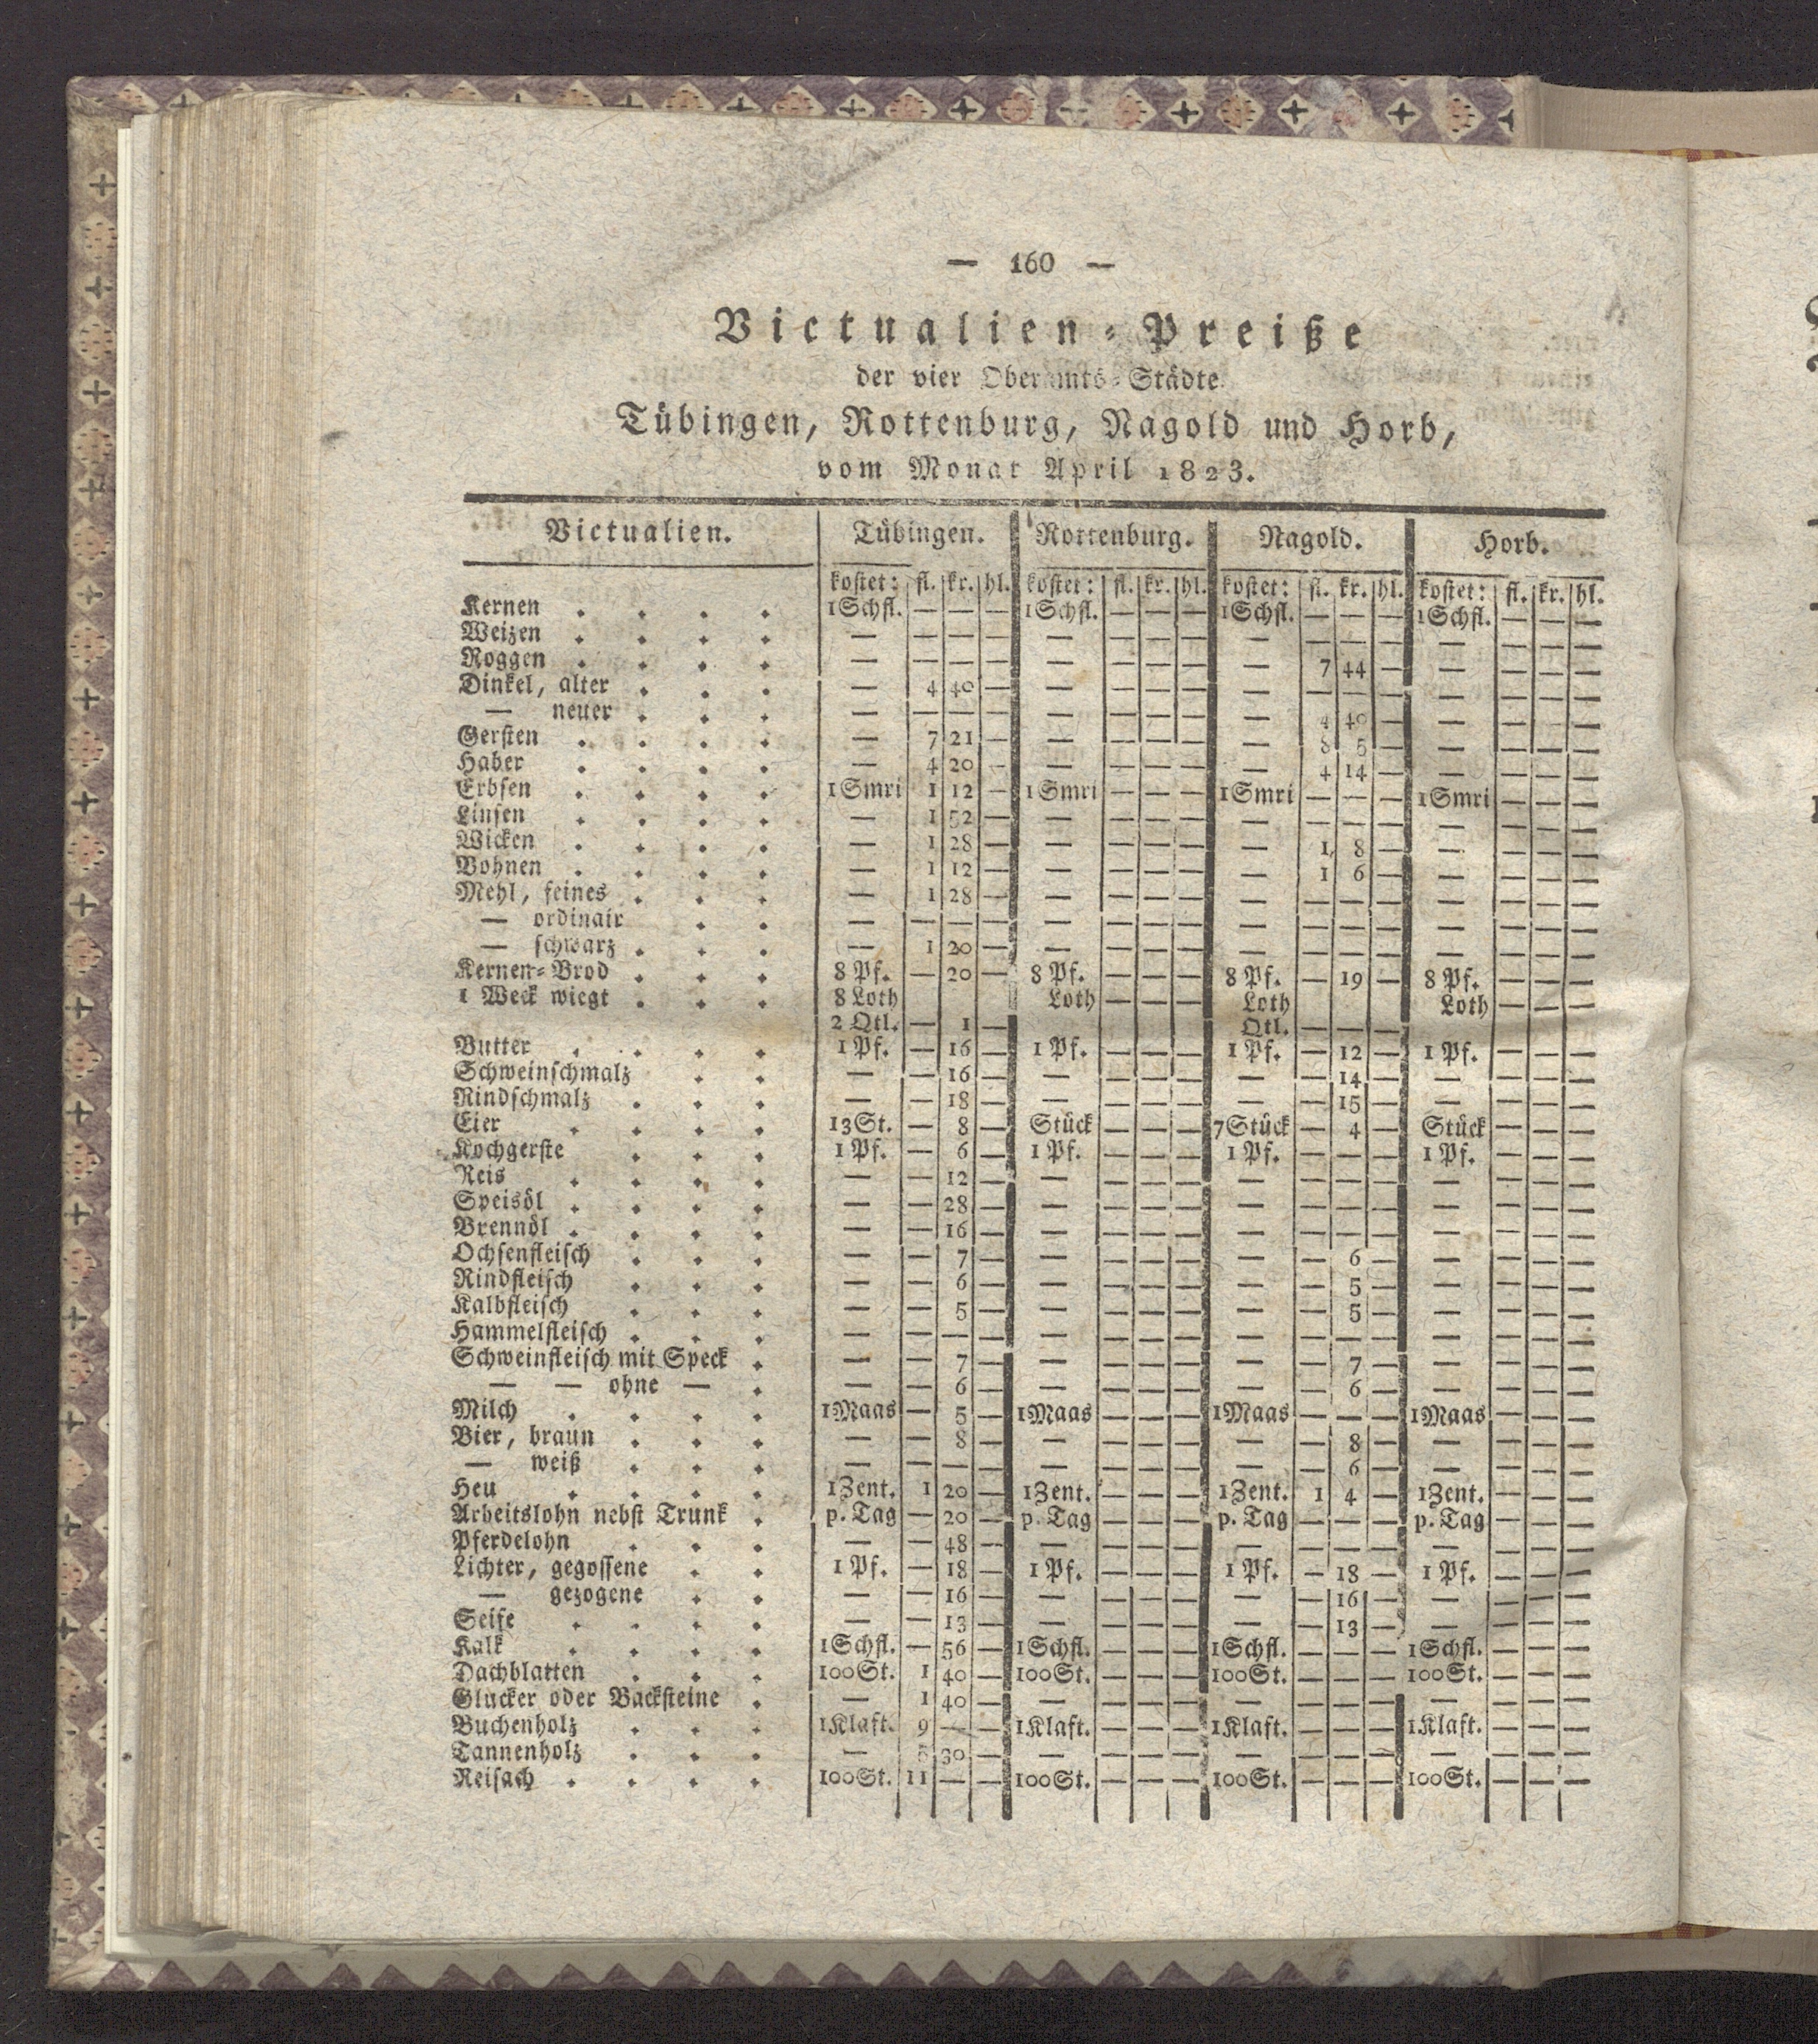 — 160 —
Victualien-Preiße
der vier Oberamts-Städte
Tübingen, Rottenburg, Nagold und Horb,
vom Monat April 1823.
Victualien. Tübingen. Rottenburg. Nagold. Horb.
kostet: fl. kr. hl. kostet: fl. kr. hl. kostet: fl. kr. hl. kostet: fl. kr. hl.
Kernen . . . . 1 Schfl. — — — 1 Schfl. — — — 1 Schfl. — — — 1 Schfl. — — —
Weizen . . . . — — — — — — — — — — — — — — — —
Roggen . . . . — — — — — — — — — 7 44 — — — — —
Dinkel, alter . . . — 4 40 — — — — — — — — — — — — —
— neuer . . . — — — — — — — — — 4 40 — — — — —
Gersten . . . . — 7 21 — — — — — — 8 5 — — — — —
Haber . . . . — 4 20 — — — — — — 4 14 — — — — —
Erbsen . . . . 1 Smri 1 12 — 1 Smri — — — 1 Smri — — — 1 Smri — — —
Linsen . . . . — 1 52 — — — — — — — — — — — — —
Wicken . . . . — 1 28 — — — — — — 1 8 — — — — —
Bohnen . . . . — 1 12 — — — — — — 1 6 — — — — —
Mehl, feines . . . — 1 28 — — — — — — — — — — — — —
— ordinair . . — — — — — — — — — — — — — — — —
— schwarz . . . — 1 20 — — — — — — — — — — — — —
Kernen-Brod . . . 8 Pf. — 20 — 8 Pf. — — — 8 Pf. — 19 — 8 Pf. — — —
1 Weck wiegt . . . 8 Loth Loth — — — Loth Loth — — —
2 Qtl. — 1 — Qtl. — — —
Butter . . . . 1 Pf. — 16 — 1 Pf. — — — 1 Pf. — 12 — 1 Pf. — — —
Schweinschmalz . . — — 16 — — — — — — — 14 — — — — —
Rindschmalz . . . — — 18 — — — — — — — 15 — — — — —
Eier . . . . 13 St. — 8 — Stück — — — 7 Stück — 4 — Stück — — —
Kochgerste . . . 1 Pf. — 6 — 1 Pf. — — — 1 Pf. — — — 1 Pf. — — —
Reis . . . . — — 12 — — — — — — — — — — — — —
Speisöl . . . . — — 28 — — — — — — — — — — — — —
Brennöl . . . . — — 16 — — — — — — — — — — — — —
Ochsenfleisch . . . — — 7 — — — — — — — 6 — — — — —
Rindfleisch . . . — — 6 — — — — — — — 5 — — — — —
Kalbfleisch . . . — — 5 — — — — — — — 5 — — — — —
Hammelfleisch . . . — — — — — — — — — — — — — — — —
Schweinfleisch mit Speck . — — 7 — — — — — — — 7 — — — — —
— — ohne — . — — 6 — — — — — — — 6 — — — — —
Milch . . . . 1 Maas — 5 — 1 Maas — — — 1 Maas — — — 1 Maas — — —
Bier, braun . . . — — 8 — — — — — — — 8 — — — — —
— weiß . . . — — — — — — — — — — 6 — — — — —
Heu . . . . 1 Zent. 1 20 — 1 Zent. — — — 1 Zent. 1 4 — 1 Zent. — — —
Arbeitslohn nebst Trunk . p. Tag — 20 — p. Tag — — — p. Tag — — — p. Tag — — —
Pferdelohn . . . — — 48 — — — — — — — — — — — — —
Lichter, gegossene . . 1 Pf. — 18 — 1 Pf. — — — 1 Pf. — 18 — 1 Pf. — — —
— gezogene . . — — 16 — — — — — — — 16 — — — — —
Seife . . . . — — 13 — — — — — — — 13 — — — — —
Kalk . . . . 1 Schfl. — 56 — 1 Schfl. — — — 1 Schfl. — — — 1 Schfl. — — —
Dachblatten . . . 100 St. 1 40 — 100 St. — — — 100 St. — — — 100 St. — — —
Glucker oder Backsteine . — 1 40 — — — — — — — — — — — — —
Buchenholz . . . 1 Klaft. 9 — — 1 Klaft. — — — 1 Klaft. — — — 1 Klaft. — — —
Tannenholz . . . — 30 — — — — — — — — — — — — —
Reisach . . . . 100 St. 11 — — 100 St. — — — 100 St. — — — 100 St. — — —